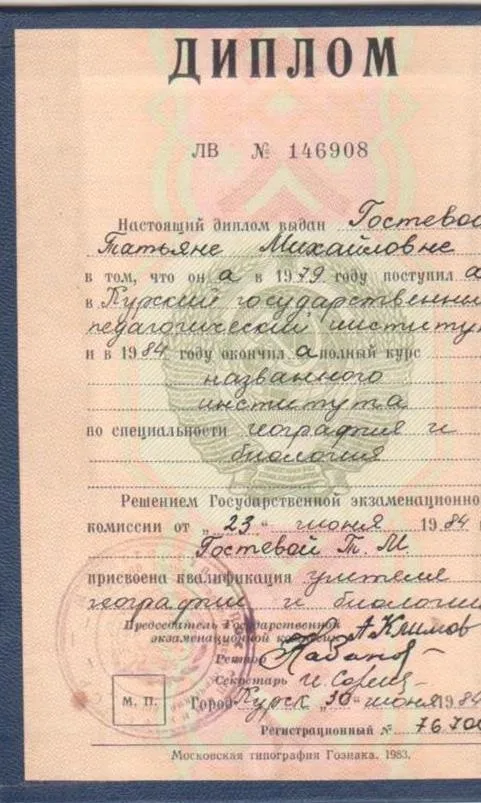 ДИПЛОМ
ЛВ № 146908
Настоящий диплом выдан Гостевой
Татьяне Михайловне
в том, что он а в 1979 году поступил а
в Курский государственный
педагогический институт
и в 1984 году окончил а полный курс
названного
института
по специальности география и
биология
Решением Государственной экзаменационно
комиссии от „23“ июня 1984
Гостевой Т. М.
присвоена квалификация учителя
географии и биологии
Председатель Государственной
экзаменационной комиссии А Климов
Ректор
Секретарь
М. П.
Город Курск „30“ июня 1984
Регистрационный № 76.70
Московская типография Гознака. 1983.